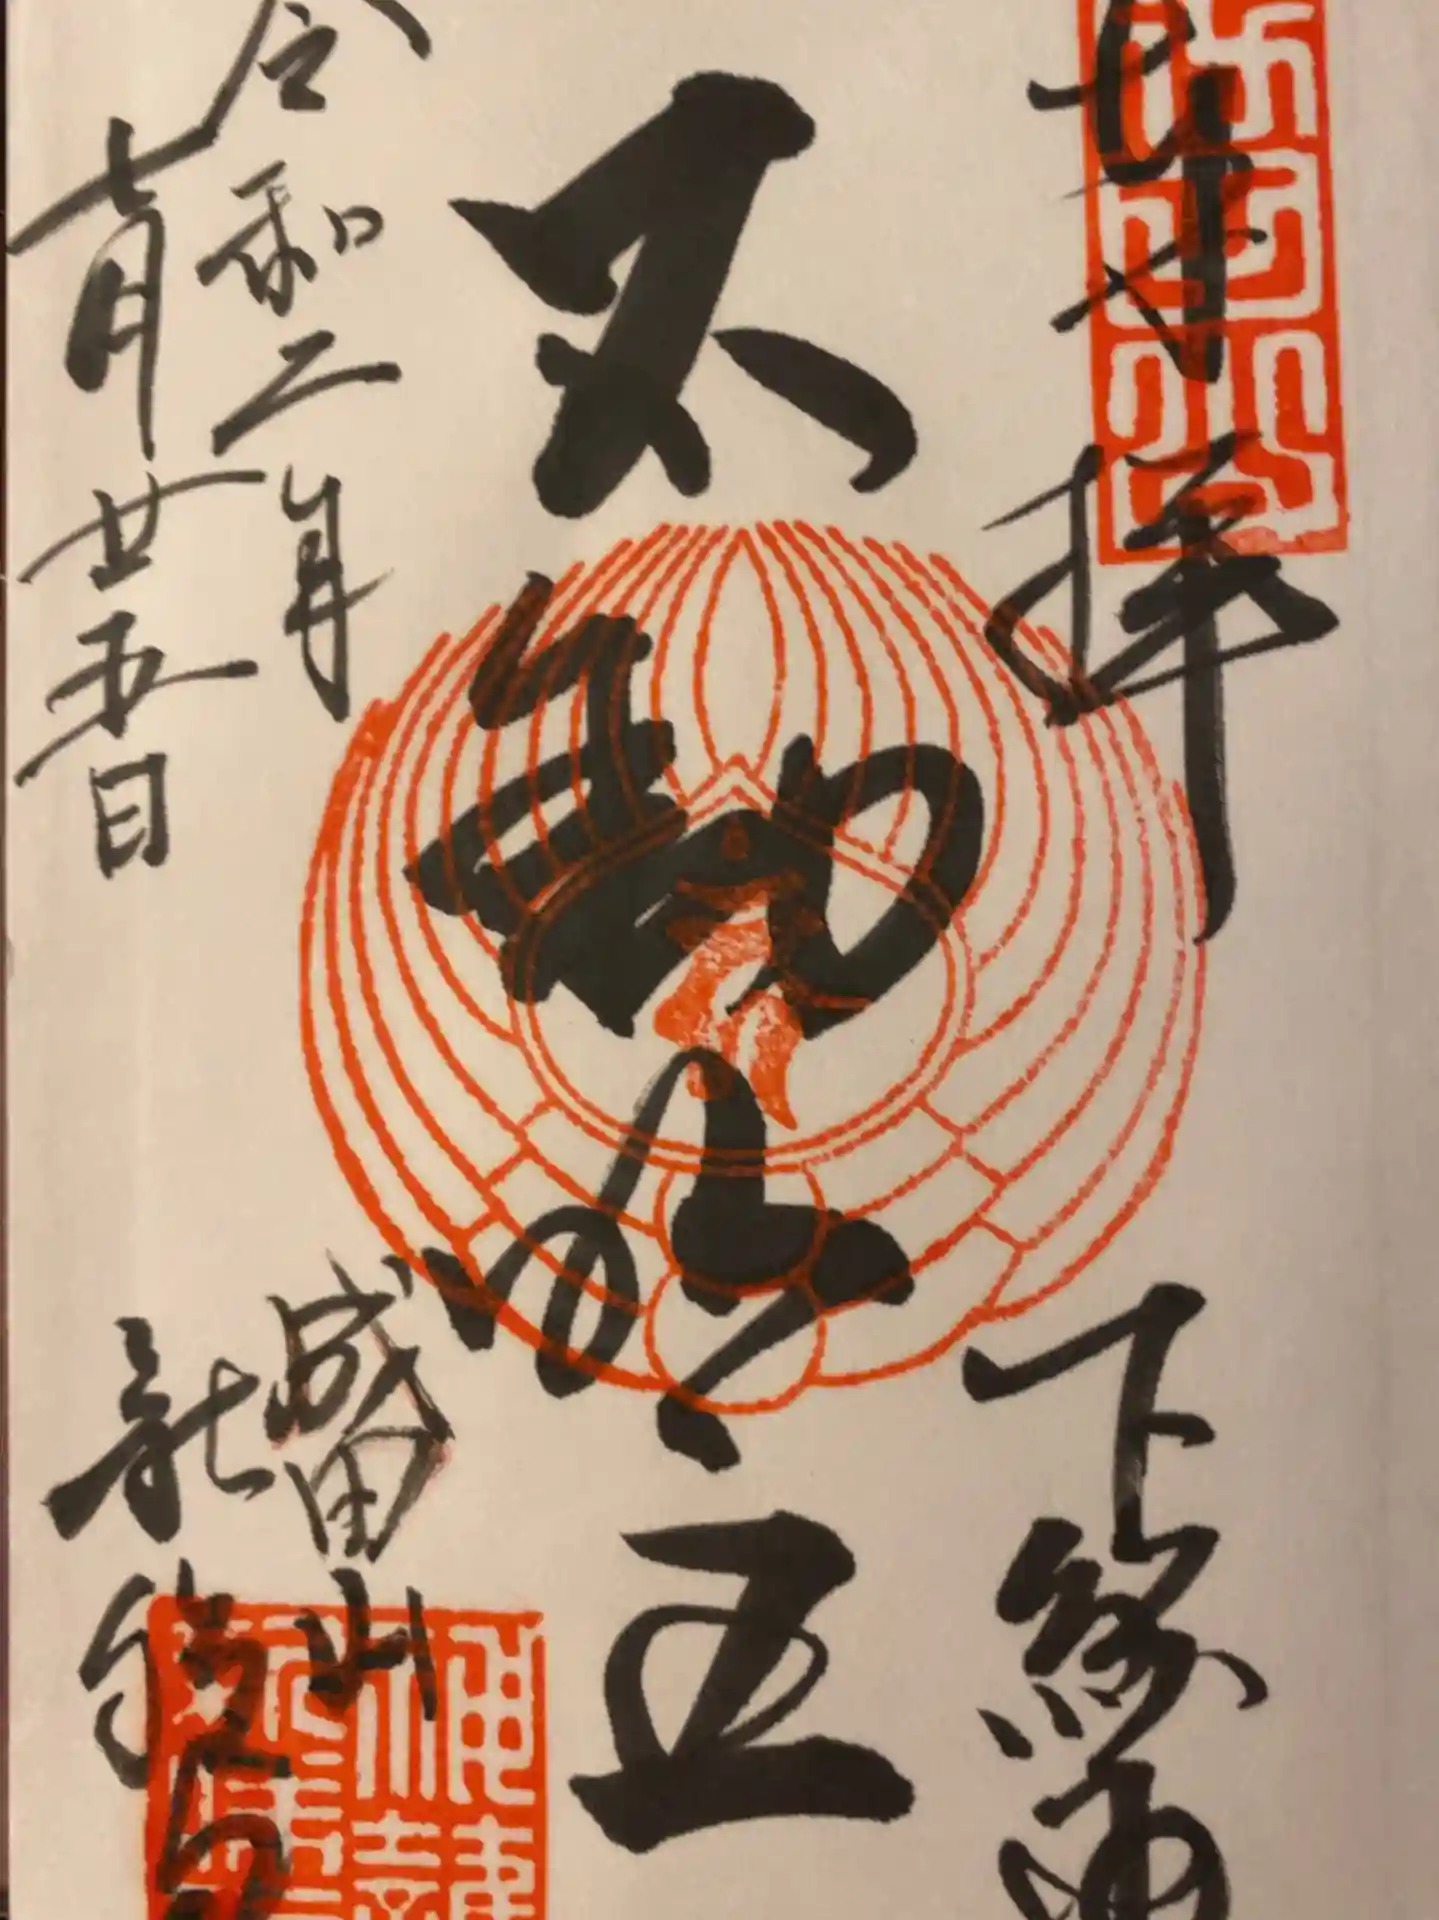 奉拝 下総國
不動明王
令和二年
七月廿五日
成田山
新勝寺